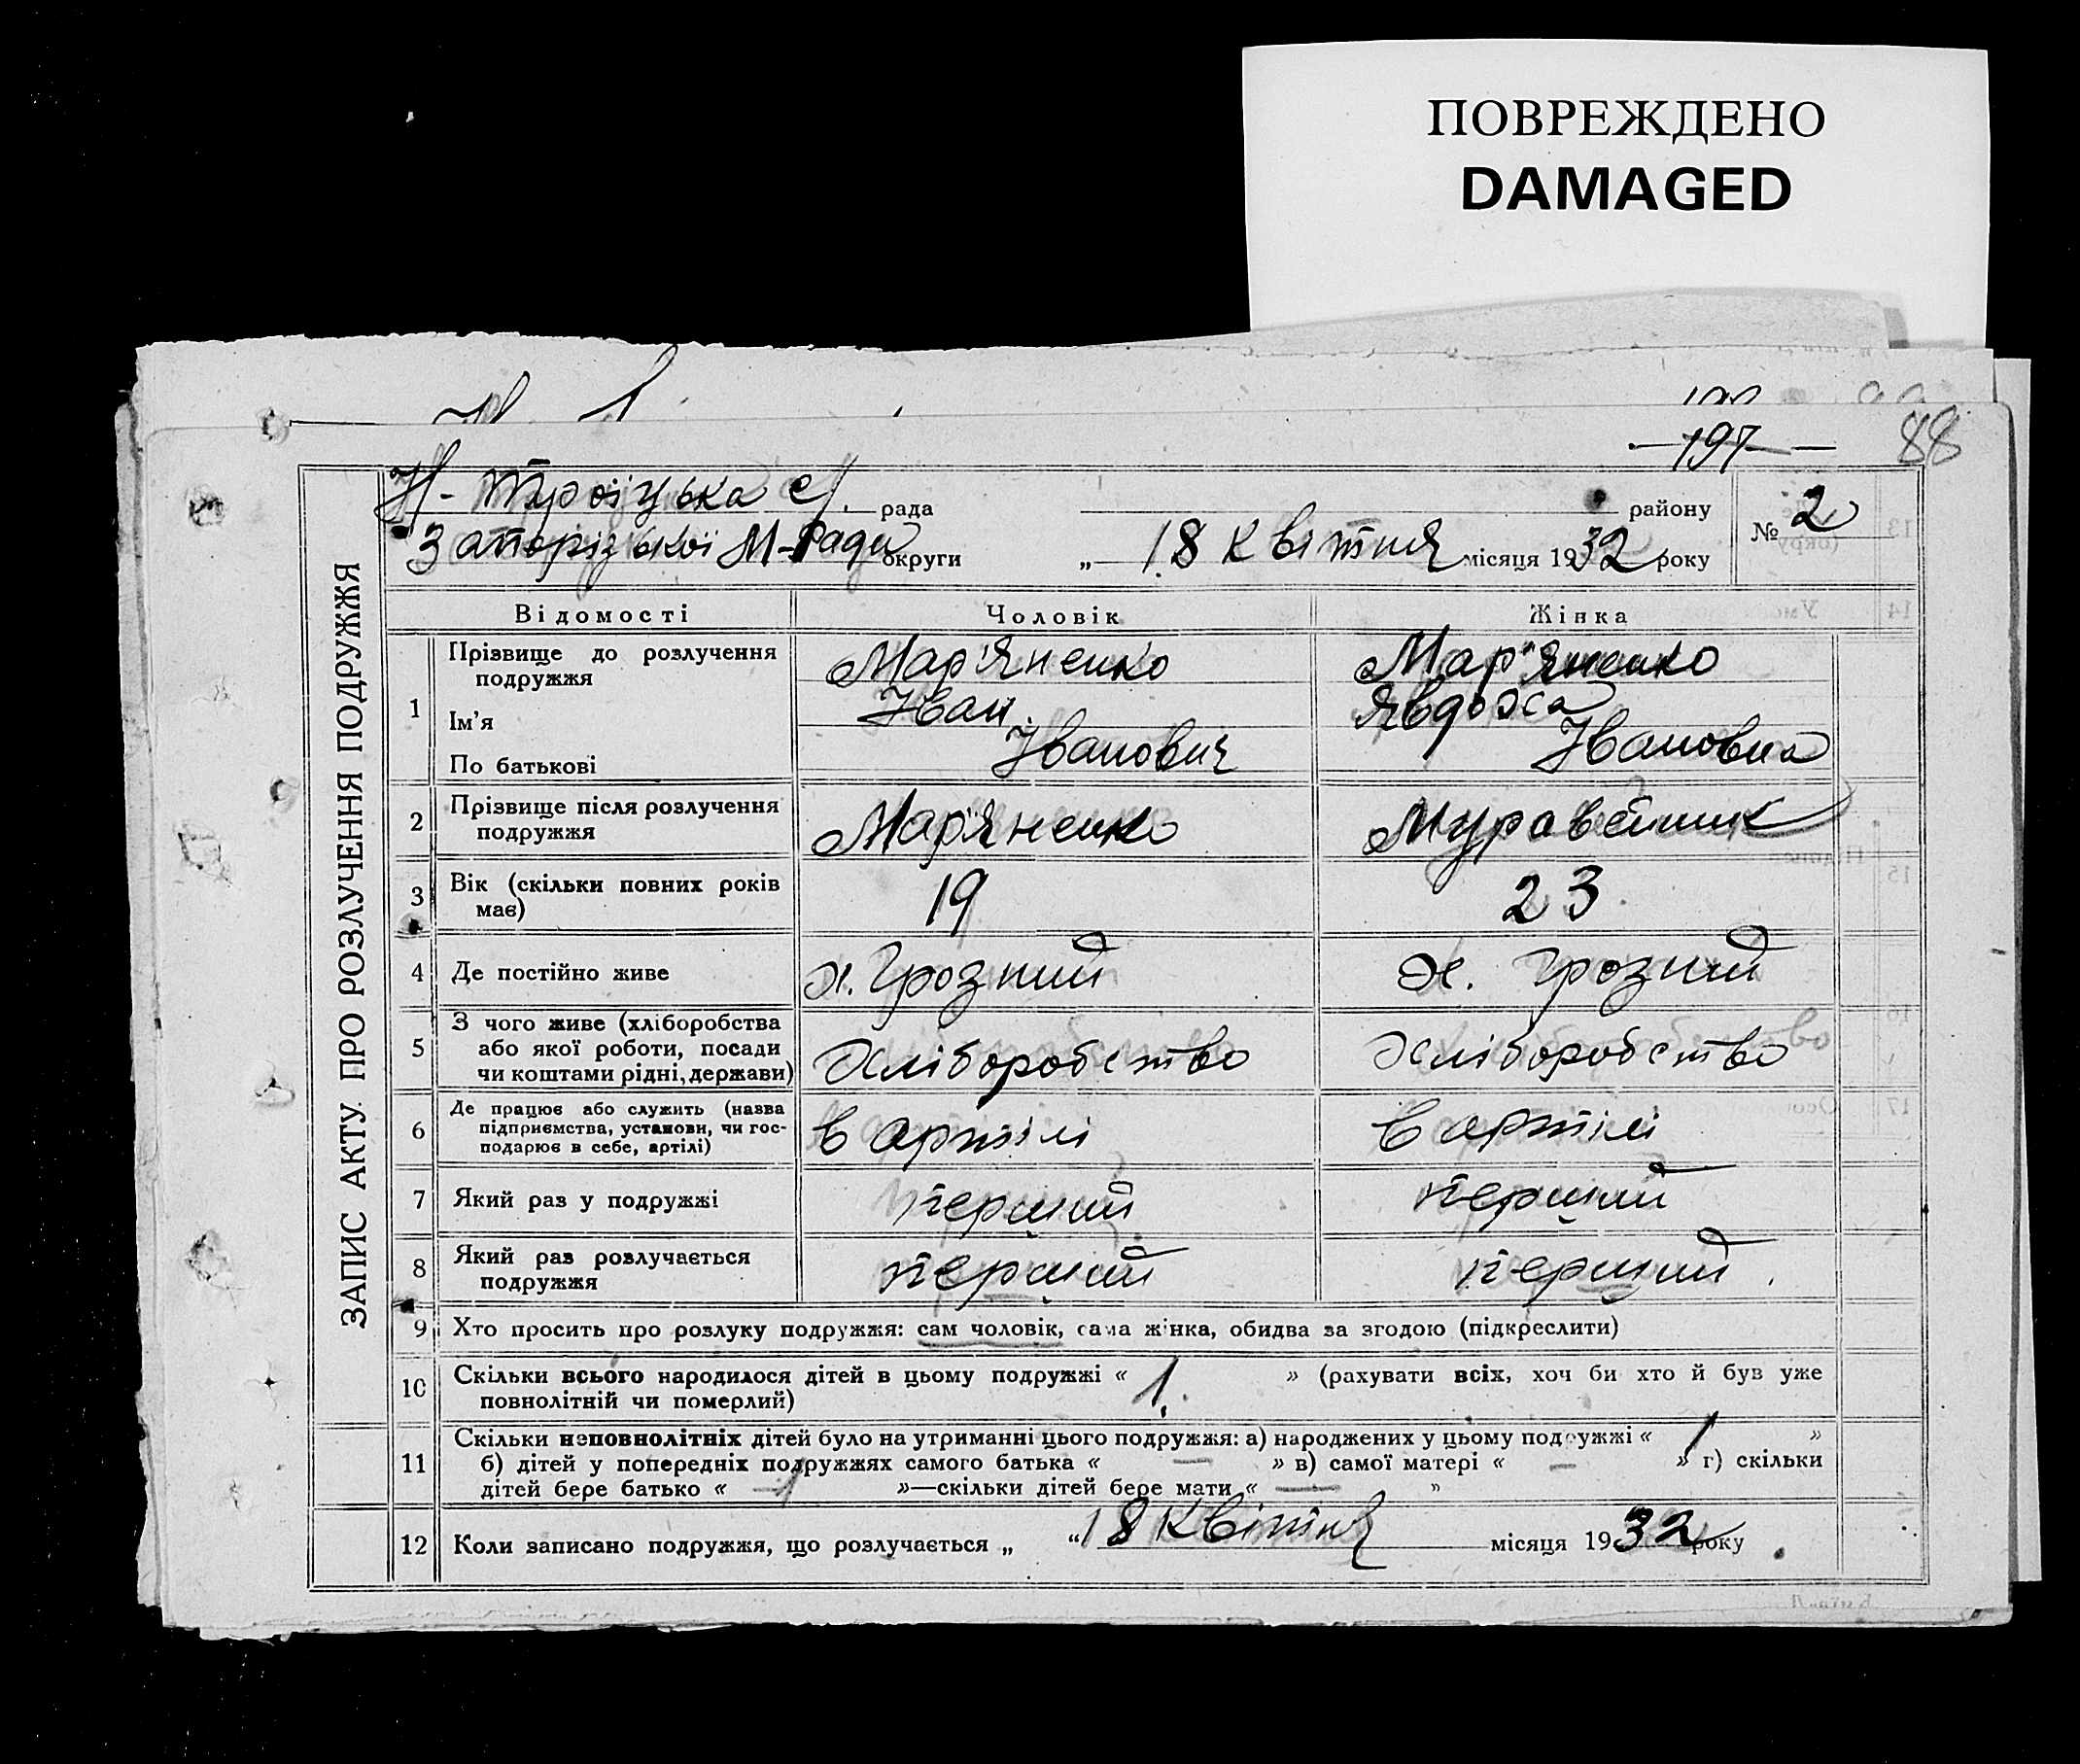 ПОВРЕЖДЕНО
DAMAGED
197
88
Н-Троїцька с/. рада району
Запорізької М-Ради округи „ 18 Квітня місяця 1932 року
№ 2
ЗАПИС АКТУ ПРО РОЗЛУЧЕННЯ ПОДРУЖЖЯ
Відомості Чоловік Жінка
1 Прізвище до розлучення подружжя Мар'яненко Мар'яненко
Ім'я Іван Явдоха
По батькові Іванович Івановна
2 Прізвище після розлучення подружжя Мар'яненко Муравейник
3 Вік (скільки повних років має) 19 23
4 Де постійно живе х. Грозний х. Грозний
5 З чого живе (хліборобства
або якої роботи, посади Хліборобство Хліборобство
чи коштами рідні, держави)
6 Де працює або служить (назва
підприємства, установи, чи гос- в артілі в артілі
подарює в себе, артілі)
7 Який раз у подружжі перший перший
8 Який раз розлучається подружжя перший перший.
9 Хто просить про розлуку подружжя: сам чоловік, сама жінка, обидва за згодою (підкреслити)
10 Скільки всього народилося дітей в цьому подружжі « 1. » (рахувати всіх, хоч би хто й був уже
повнолітній чи померлий)
11 Скільки неповнолітніх дітей було на утриманні цього подружжя: а) народжених у цьому подружжі « 1 »
б) дітей у попередніх подружжях самого батька « — » в) самої матері « — » г) скільки
дітей бере батько « 1 »—скільки дітей бере мати « — »
12 Коли записано подружжя, що розлучається „ “ 18 Квітня місяця 1932 року